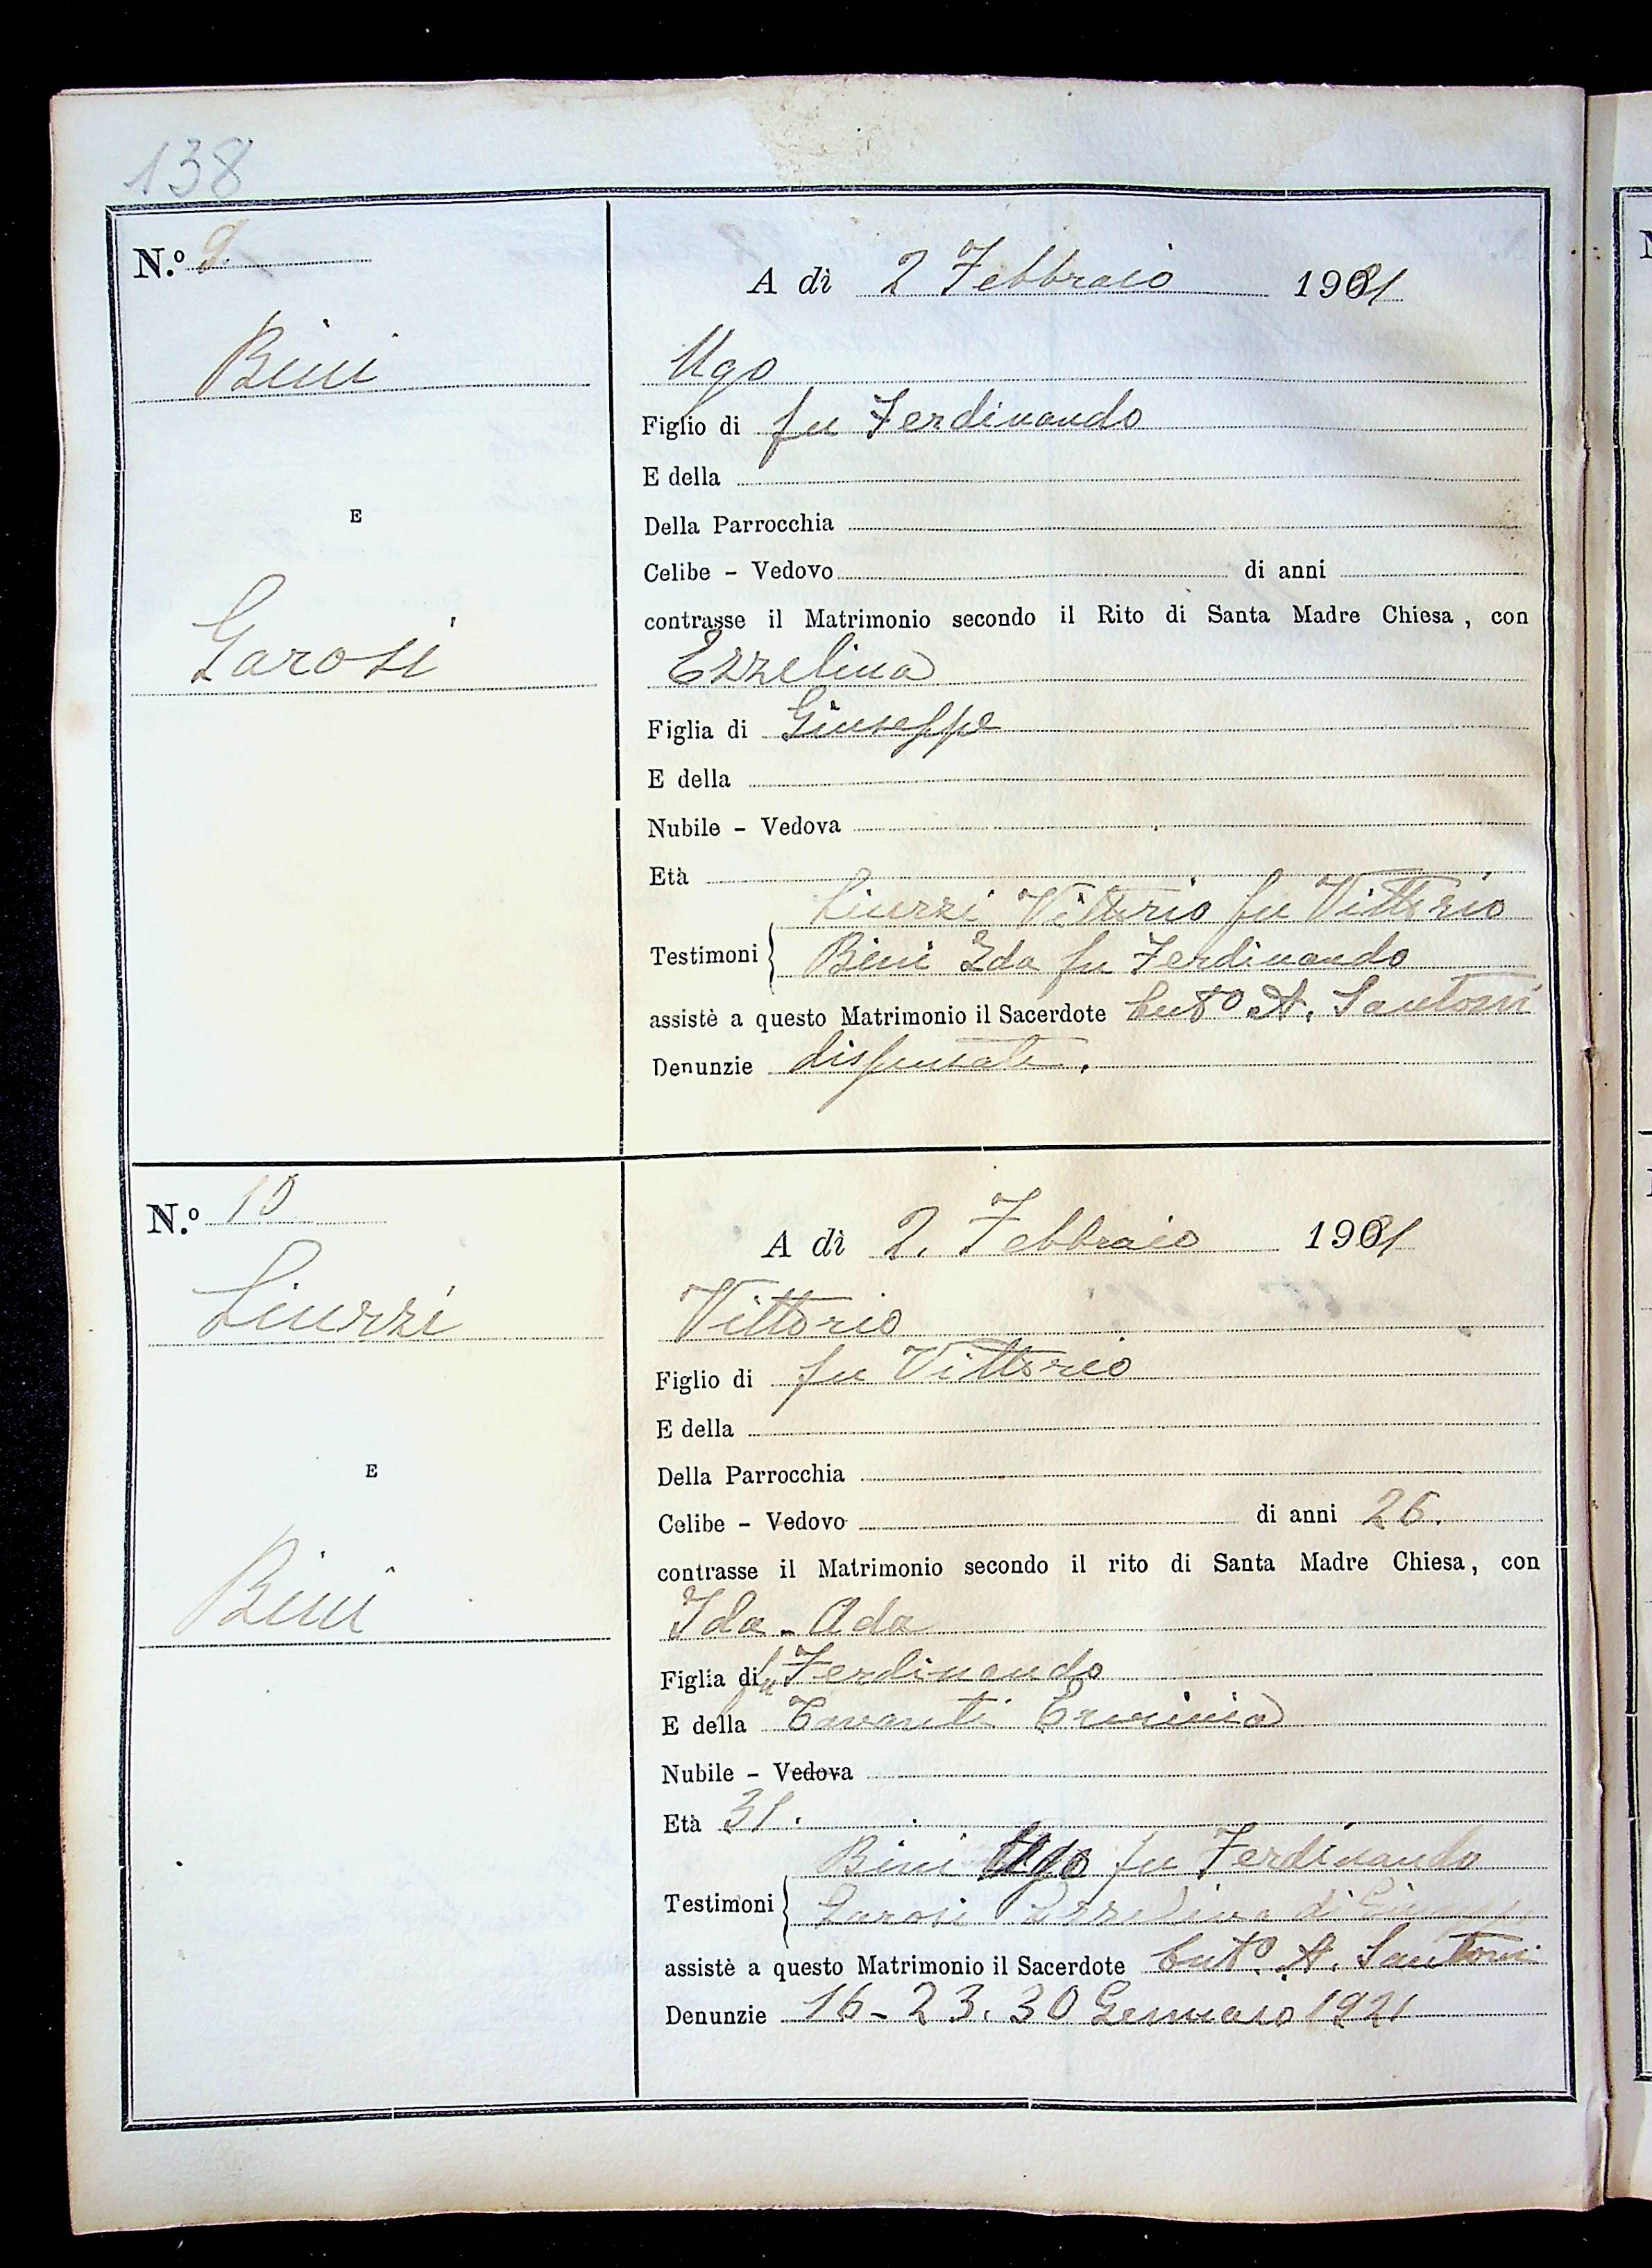 138
N.º 9.
A dì 2 Febbraio 1921
Bini
Ugo
Figlio di fu Ferdinando
E della
Della Parrocchia
E
Celibe - Vedovo di anni
contrasse il Matrimonio secondo il Rito di Santa Madre Chiesa, con
Garosi
Ezzelina
Figlia di Giuseppe
E della
Nubile - Vedova
Età
Liuzzi Vittorio fu Vittorio
Testimoni Bini Ida fu Ferdinando
assistè a questo Matrimonio il Sacerdote A. Santoni
Denunzie dispensate.
N.º 10
A dì 2. Febbraio 1921
Liuzzi
Vittorio
Figlio di fu Vittorio
E della
Della Parrocchia
E
Celibe - Vedovo di anni 26.
contrasse il Matrimonio secondo il rito di Santa Madre Chiesa, con
Bini
Ida - Ada
Figlia di fu Ferdinando
E della Tavanti Erminia
Nubile - Vedova
Età 31.
Bini Ugo fu Ferdinando
Testimoni Garosi Ezzelina di Giuseppe
assistè a questo Matrimonio il Sacerdote A. Santoni
Denunzie 16 - 23. 30 Gennaio 1921